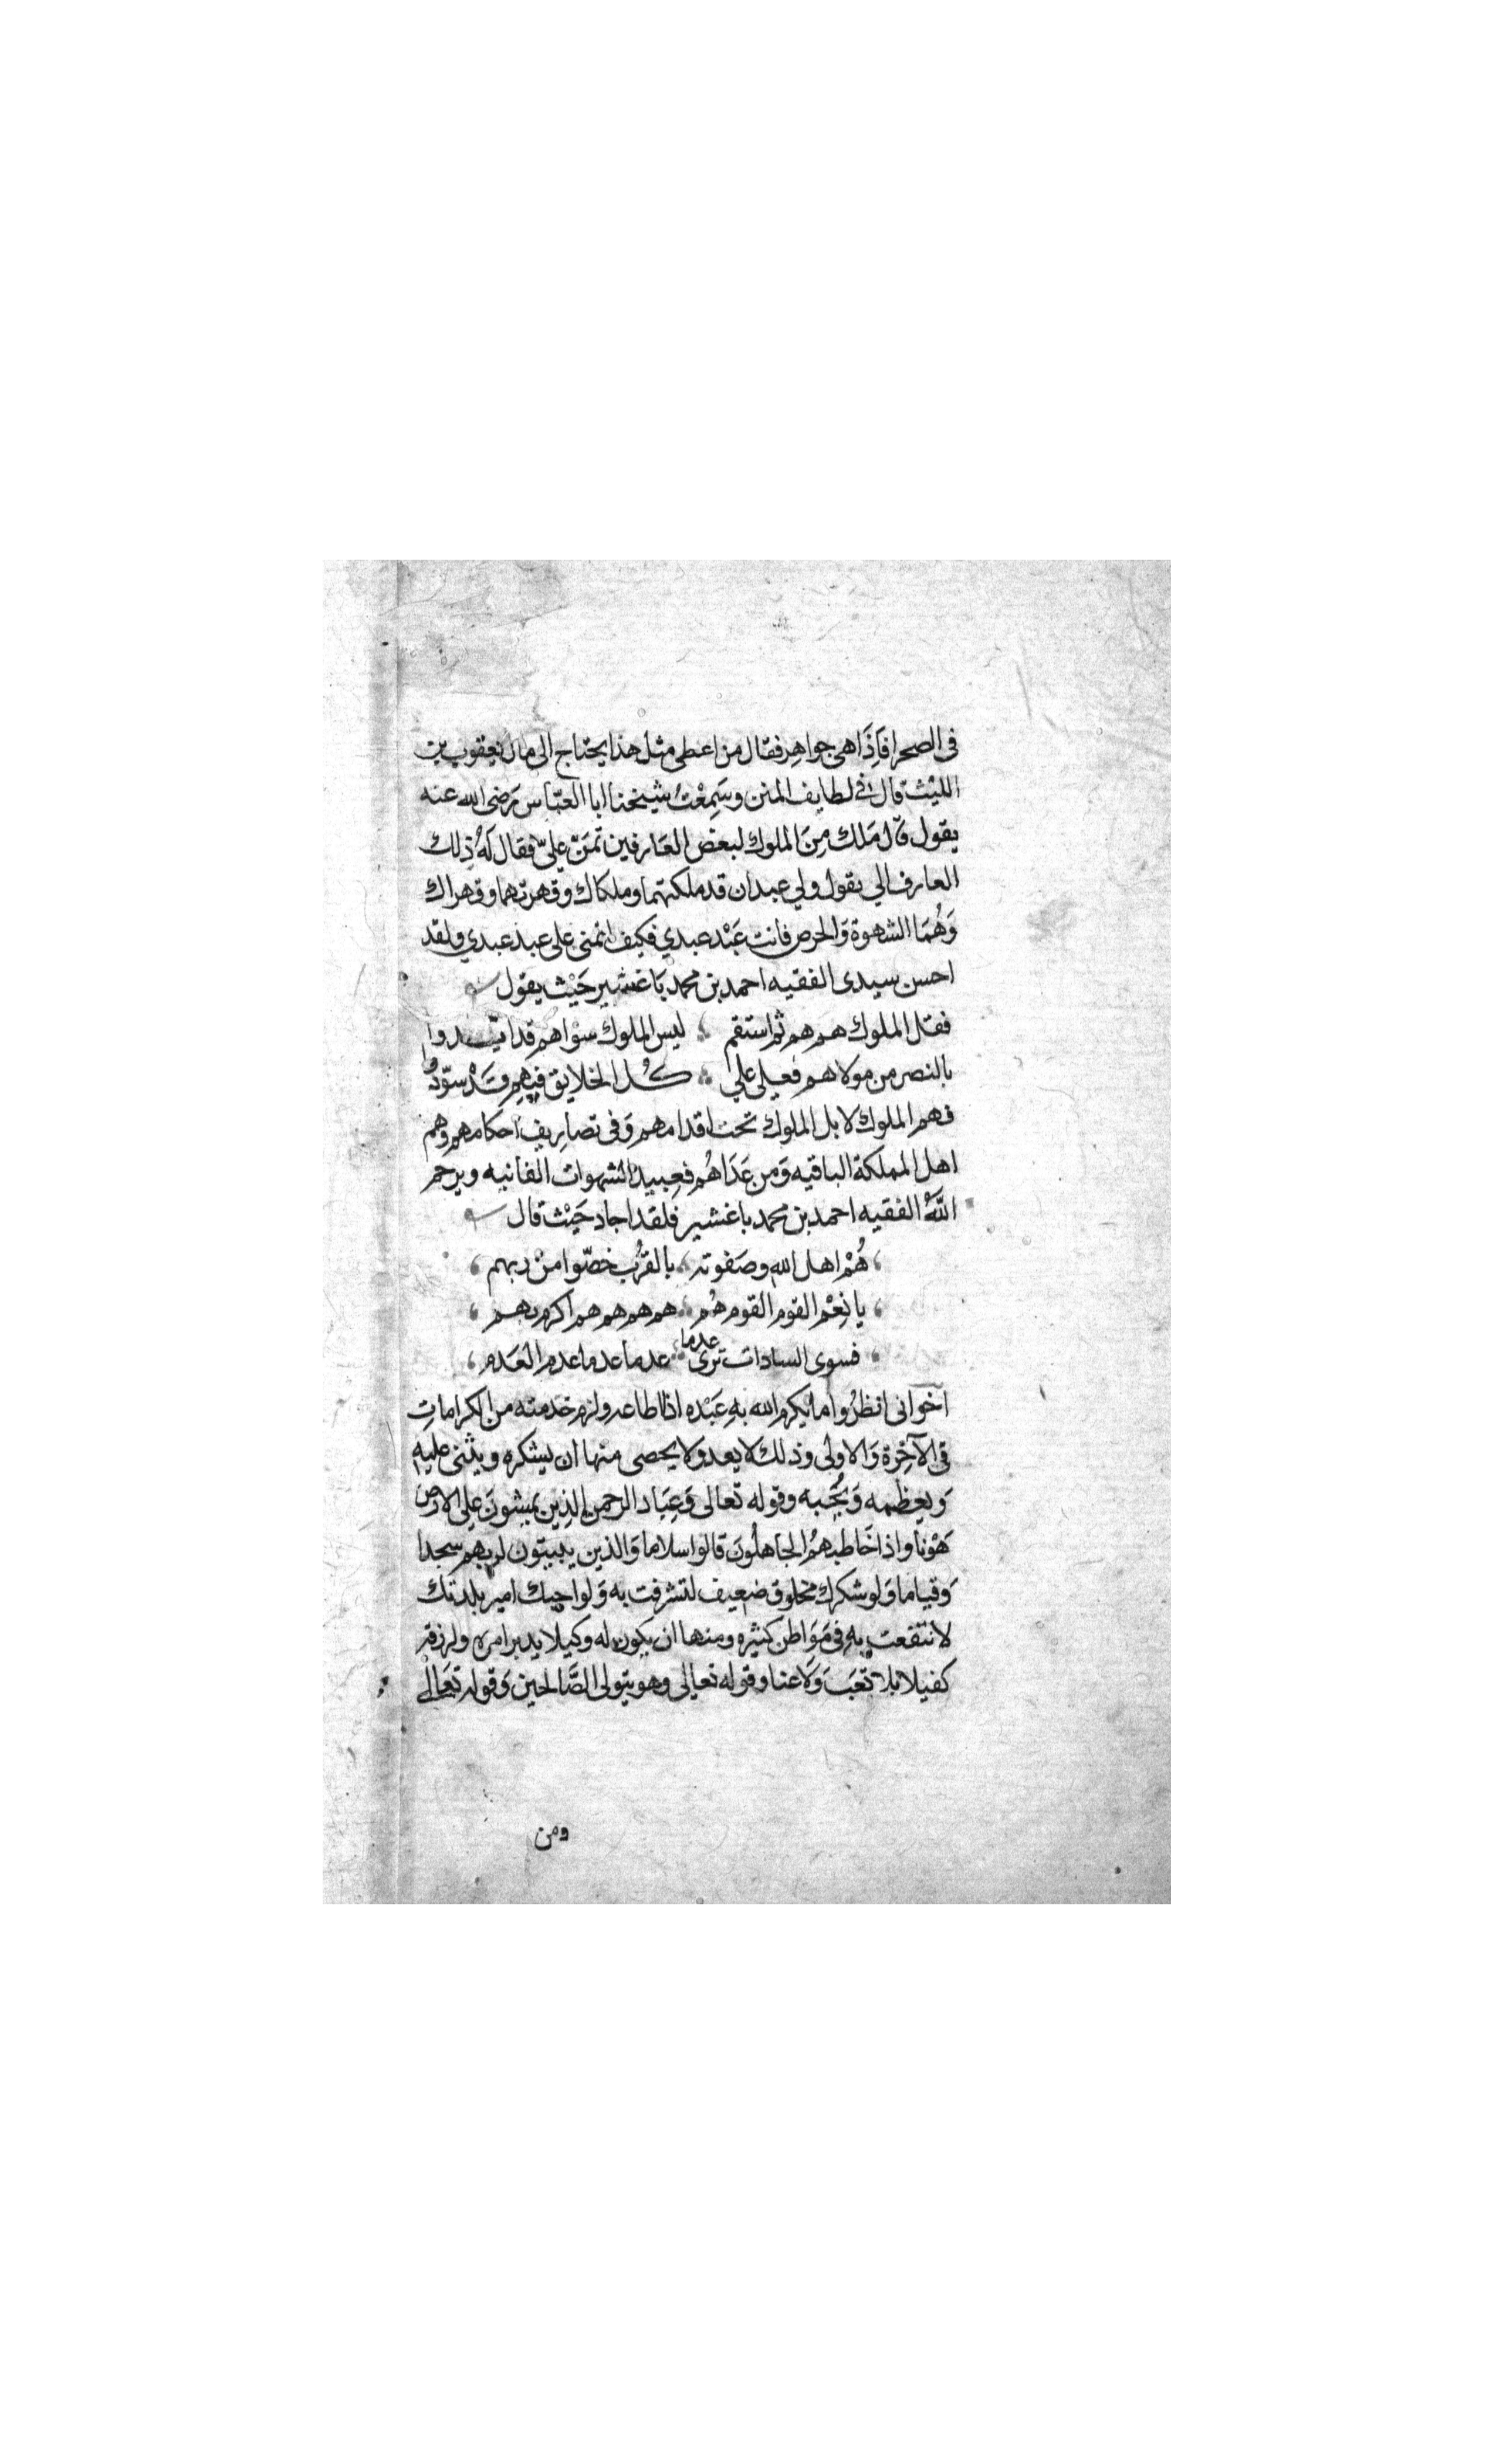 في الصحرا فَاِذَا هى جواهر فقال من اعطى مثل هذا يحتاج الى مال يعقوب بن
الليْث قال في لطايف المنن وسَمِعْتُ شيخنا ابا العبّاس رَضى الله عنه
يقول قال مَلك مِنَ الملوك لبعض العَارفين تمَنّ علىّ فقال لَهُ ذلك
العارف الي يقول ولي عبدان قد ملكتهما وملكاك وقهرتهما وقهراك
وَهُمَا الشهوة وَالحرص فانت عَبْد عبدي فكيف اتمنى على عبد عبدي ولقد
احسن سيدى الفقيه احمد بن محمد بَاغشير حَيْث يقول
فقل الملوك هم هم ثم استقم ليس الملوك سوَاهم قد ايّدوا
بالنصر من مولاهم فعيلى علي كُل الخلايق فيهم قَدْ سوّدُوا
فهم الملوك لا بل الملوك تحت اقدامهم وَفى تصاريف احكامهم وهم
اهل المملكة الباقيه وَمن عَدَاهُم فعبيد الشهوات الفانيه ويرحم
اللَّهُ الفقيه احمد بن محمد باغشير فلقد اجاد حَيْث قال
هُمْ اهل الله وصَفوته بالقرُب خصّوا منْ ربهم
يا نِعْم القوم القوم هُم هم هم هم هم اكرم بهم
فسوى السادات ترى عدما عدما عدما عدم العَدم
اخوانى انظرُوا ما يكرم الله بهِ عَبْده اذا اطاعه ولزم خدمته من الكرامات
فى الآخِرة وَالاولى وذلك لا يعد ولا يحصى منها ان يشكره ويثنى عليه
وَيعظمه وَيُحبه وقوله تعالى وَعِبَاد الرحمن الذين يمشونَ على الارض
هَوْنا واذا خَاطبهمُ الجاهلُونَ قالوا سلاما وَالذين يبيتون لربهم سجدا
وَقياما وَلو شكرك مخلوق ضعيف لتشرفت به وَلو احبك امير بلدتك
لانتفعت بهِ فى مَوَاطن كثيره ومنها ان يكون له وكيلا يدبر امره ولرزقه
كفيلا بلا تعَبَ وَلَا عنا وقوله تعالى وهو يتولى الصَّالحين وَقوله تعَالى
ومن